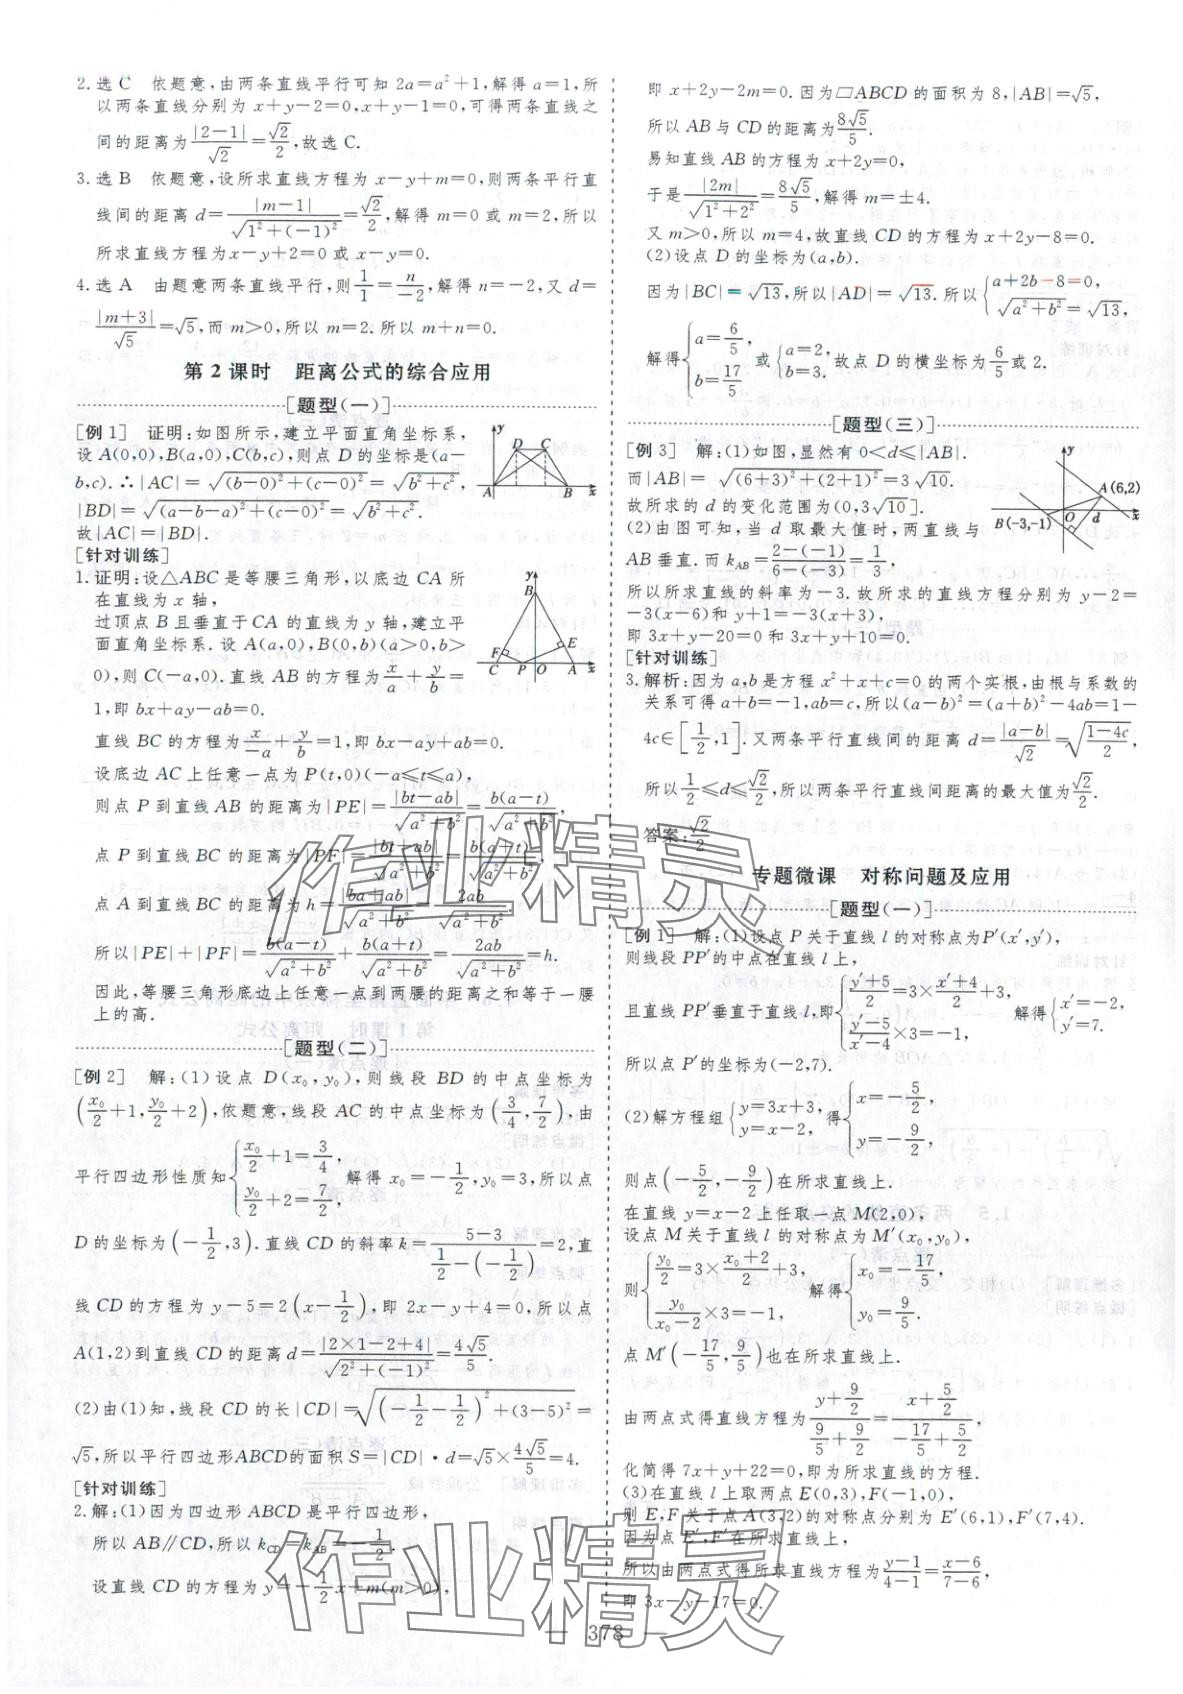 2. 选 C　依题意,由两条直线平行可知 2a=a²+1,解得 a=1,所
以两条直线分别为 x+y-2=0,x+y-1=0,可得两条直线之
间的距离为|2-1|/√2=√2/2,故选 C.
3. 选 B　依题意,设所求直线方程为 x-y+m=0,则两条平行直
线间的距离 d=|m-1|/√(1²+(-1)²)=√2/2,解得 m=0 或 m=2,所以
所求直线方程为 x-y+2=0 或 x-y=0.
4. 选 A　由题意两条直线平行,则1/1=n/-2,解得 n=-2,又 d=
|m+3|/√5=√5,而 m>0,所以 m=2.所以 m+n=0.
第 2 课时　距离公式的综合应用
[题型(一)]
[例 1]　证明:如图所示,建立平面直角坐标系,
设 A(0,0),B(a,0),C(b,c),则点 D 的坐标是(a-
b,c).∴|AC|=√((b-0)²+(c-0)²)=√(b²+c²),
|BD|=√((a-b-a)²+(c-0)²)=√(b²+c²).
故|AC|=|BD|.
y D C A B x
[针对训练]
1. 证明:设△ABC 是等腰三角形,以底边 CA 所
在直线为 x 轴,
过顶点 B 且垂直于CA 的直线为 y 轴,建立平
面直角坐标系.设 A(a,0),B(0,b)(a>0,b>
0),则 C(-a,0).直线 AB 的方程为x/a+y/b=
1,即 bx+ay-ab=0.
y B F E C P O A x
直线 BC 的方程为x/-a+y/b=1,即 bx-ay+ab=0.
设底边 AC 上任意一点为 P(t,0)(-a≤t≤a),
则点 P 到直线 AB 的距离为|PE|=|bt-ab|/√(a²+b²)=b(a-t)/√(a²+b²),
点 P 到直线 BC 的距离为|PF|=|bt+ab|/√(a²+b²)=b(a+t)/√(a²+b²),
点 A 到直线 BC 的距离为 h=|ba+ab|/√(a²+b²)=2ab/√(a²+b²),
所以|PE|+|PF|=b(a-t)/√(a²+b²)+b(a+t)/√(a²+b²)=2ab/√(a²+b²)=h.
因此,等腰三角形底边上任意一点到两腰的距离之和等于一腰
上的高.
[题型(二)]
[例 2]　解:(1)设点 D(x₀,y₀),则线段 BD 的中点坐标为
(x₀/2+1,y₀/2+2),依题意,线段 AC 的中点坐标为(3/4,7/2),由
平行四边形性质知{x₀/2+1=3/4, y₀/2+2=7/2,　解得 x₀=-1/2,y₀=3,所以点
D 的坐标为(-1/2,3).直线 CD 的斜率 k=(5-3)/(1/2-(-1/2))=2,直
线 CD 的方程为 y-5=2(x-1/2),即 2x-y+4=0,所以点
A(1,2)到直线 CD 的距离 d=|2×1-2+4|/√(2²+(-1)²)=4√5/5.
(2)由(1)知,线段 CD 的长|CD|=√((-1/2-1/2)²+(3-5)²)=
√5,所以平行四边形ABCD的面积 S=|CD|·d=√5×4√5/5=4.
[针对训练]
2. 解:(1)因为四边形 ABCD 是平行四边形,
所以 AB∥CD,所以 k_CD=k_AB=-1/2.
设直线 CD 的方程为 y=-1/2x+m(m>0),
即 x+2y-2m=0.因为▱ABCD 的面积为 8,|AB|=√5,
所以 AB 与 CD 的距离为8√5/5.
易知直线 AB 的方程为 x+2y=0,
于是|2m|/√(1²+2²)=8√5/5,解得 m=±4.
又 m>0,所以 m=4,故直线CD 的方程为 x+2y-8=0.
(2)设点 D 的坐标为(a,b).
因为|BC|=√13,所以|AD|=√13.所以{a+2b-8=0, √(a²+b²)=√13,
解得{a=6/5, b=17/5 或{a=2, b=3. 故点 D 的横坐标为6/5或 2.
[题型(三)]
[例 3]　解:(1)如图,显然有 0<d≤|AB|.
而|AB|=√((6+3)²+(2+1)²)=3√10.
故所求的 d 的变化范围为(0,3√10].
(2)由图可知,当 d 取最大值时,两直线与
AB 垂直.而 k_AB=(2-(-1))/(6-(-3))=1/3,
y A(6,2) B(-3,-1) O d x
所以所求直线的斜率为-3.故所求的直线方程分别为 y-2=
-3(x-6)和 y+1=-3(x+3),
即 3x+y-20=0 和 3x+y+10=0.
[针对训练]
3. 解析:因为 a,b 是方程 x²+x+c=0 的两个实根,由根与系数的
关系可得 a+b=-1,ab=c,所以(a-b)²=(a+b)²-4ab=1-
4c∈[1/2,1].又两条平行直线间的距离 d=|a-b|/√2=√((1-4c)/2),
所以1/2≤d≤√2/2,所以两条平行直线间距离的最大值为√2/2.
答案:√2/2
专题微课　对称问题及应用
[题型(一)]
[例 1]　解:(1)设点 P 关于直线 l 的对称点为P′(x′,y′),
则线段 PP′的中点在直线 l 上,
且直线 PP′垂直于直线 l,即{(y′+5)/2=3×(x′+4)/2+3, (y′-5)/(x′-4)×3=-1,　解得{x′=-2, y′=7.
所以点 P′的坐标为(-2,7).
(2)解方程组{y=3x+3, y=x-2, 得{x=-5/2, y=-9/2,
则点(-5/2,-9/2)在所求直线上.
在直线 y=x-2 上任取一点 M(2,0),
设点 M 关于直线 l 的对称点为 M′(x₀,y₀),
则{y₀/2=3×(x₀+2)/2+3, y₀/(x₀-2)×3=-1,　解得{x₀=-17/5, y₀=9/5.
点 M′(-17/5,9/5)也在所求直线上.
由两点式得直线方程为(y+9/2)/(9/5+9/2)=(x+5/2)/(-17/5+5/2),
化简得 7x+y+22=0,即为所求直线的方程.
(3)在直线 l 上取两点 E(0,3),F(-1,0),
则 E,F 关于点 A(3,2)的对称点分别为 E′(6,1),F′(7,4).
因为点 E′,F′在所求直线上,
所以由两点式得所求直线方程为(y-1)/(4-1)=(x-6)/(7-6),
即 3x-y-17=0.
— 378 —
作业精灵
作业精灵